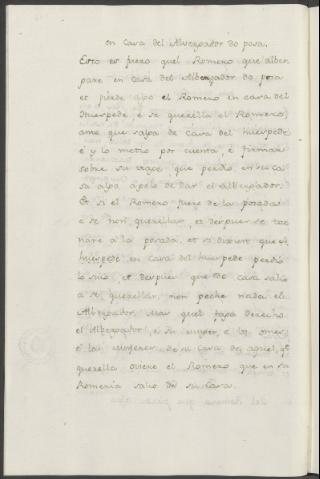 en Casa del Alvergador do posa.
Esto es fuero quel Romero que alber
gare en casa del Albergador do posa
et pierde algo el Romero en casa del
Huesped, e se querella el Romero,
ante que salga de Casa del huespede
e y lo metio por cuenta, e firmare
sobre su que perdio en su ca
sa algo de dar el albergador.
Et si el Romero fuere de la posada
e se non querellar, et despues se tor
nare a la posada, et si dixiere que el
huespede en Casa del huespede perdió
lo suio, et despues que de casa salio
a se querellar, non peche nada el
Albergador, mas quel faga derecho
el Albergador e su muger, e los omes,
e las mugeres de su Casa de aquel, q.e
querella oviere el Romero que en su
Romeria salio de su Casa.